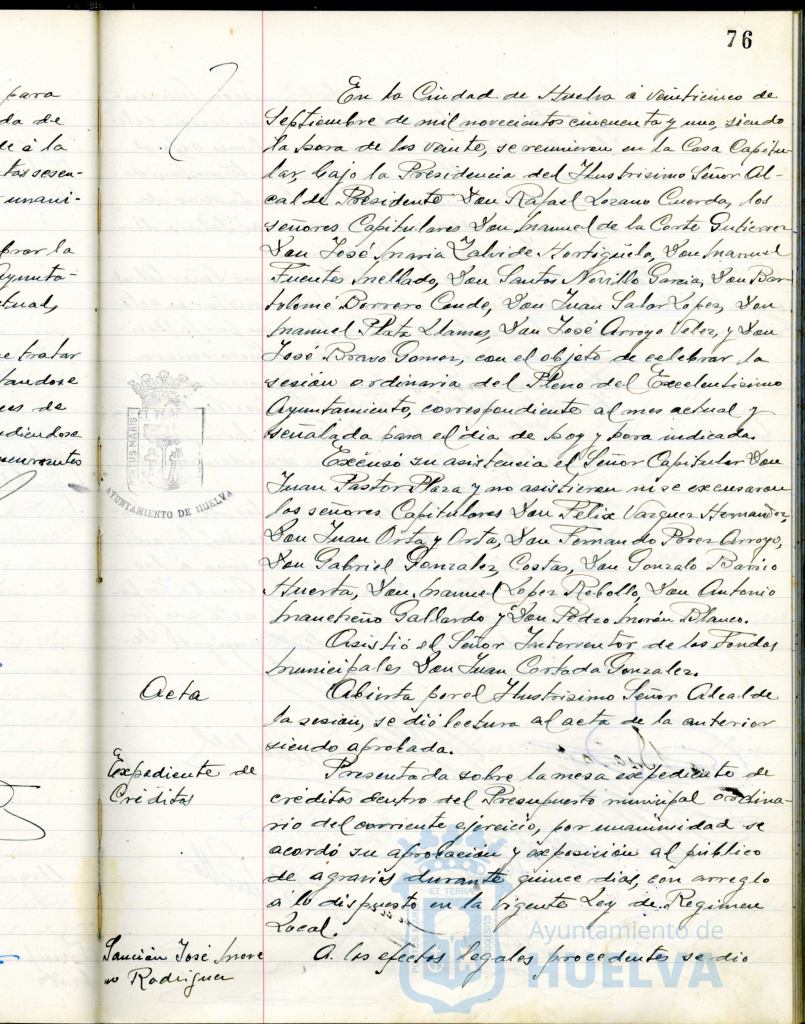 76
para
da de
de á la
tas sesen-
unani-
brar la
Ayunta-
ctual,
e tratar
tandose
ces de
ndiendose
ocurrentes
En la Ciudad de Huelva á veinticinco de
Septiembre de mil novecientos cincuenta y uno, siendo
la hora de las veinte, se reunieron en la Casa Capitu-
lar, bajo la Presidencia del Ilustrisimo Señor Al-
calde Presidente Don Rafael Lozano Cuerda, los
señores Capitulares Don Manuel de la Corte Gutierrez
Don José Maria Zalvide Hortigüelo, Don Manuel
Fuentes Mellado, Don Santos Novillo Garcia, Don Bar-
tolomé Borrero Conde, Don Juan Salar Lopez, Don
Manuel Plata Llamas, Don José Arroyo Velez, y Don
José Bravo Gomez, con el objeto de celebrar la
sesión ordinaria del Pleno del Excelentisimo
Ayuntamiento, correspondiente al mes actual y
señalada para el dia de hoy y hora indicada.
Excusó su asistencia el Señor Capitular Don
Juan Pastor Plaza y no asistieron ni se excusaron
los señores Capitulares Don Felix Vazquez Hernandez,
Don Juan Orta y Orta, Don Fernando Perez Arroyo,
Don Gabriel Gonzalez Costas, Don Gonzalo Barrio
Huerta, Don Manuel Lopez Rebollo, Don Antonio
Mancheño Gallardo y Don Pedro Morán Blanco.
Asistió el Señor Interventor de los Fondos
Municipales Don Juan Cortada Gonzalez.
Acta
Abierta por el Ilustrisimo Señor Alcalde
la sesión, se dió lectura al acta de la anterior
siendo aprobada.
Expediente de
Créditos
Presentada sobre la mesa expediente de
créditos dentro del Presupuesto municipal ordina-
rio del corriente ejercicio, por unanimidad se
acordó su aprobación y exposición al público
de agravios durante quince dias, con arreglo
á lo dispuesto en la vigente Ley de Regimen
Local.
Sanción José More
no Rodriguez
A los efectos legales procedentes se dio
PORTUS MARIS
ET TERRAE
AYUNTAMIENTO DE HUELVA
ET TERRAE
PORTUS MARIS
CUSTODIA
Ayuntamiento de
HUELVA